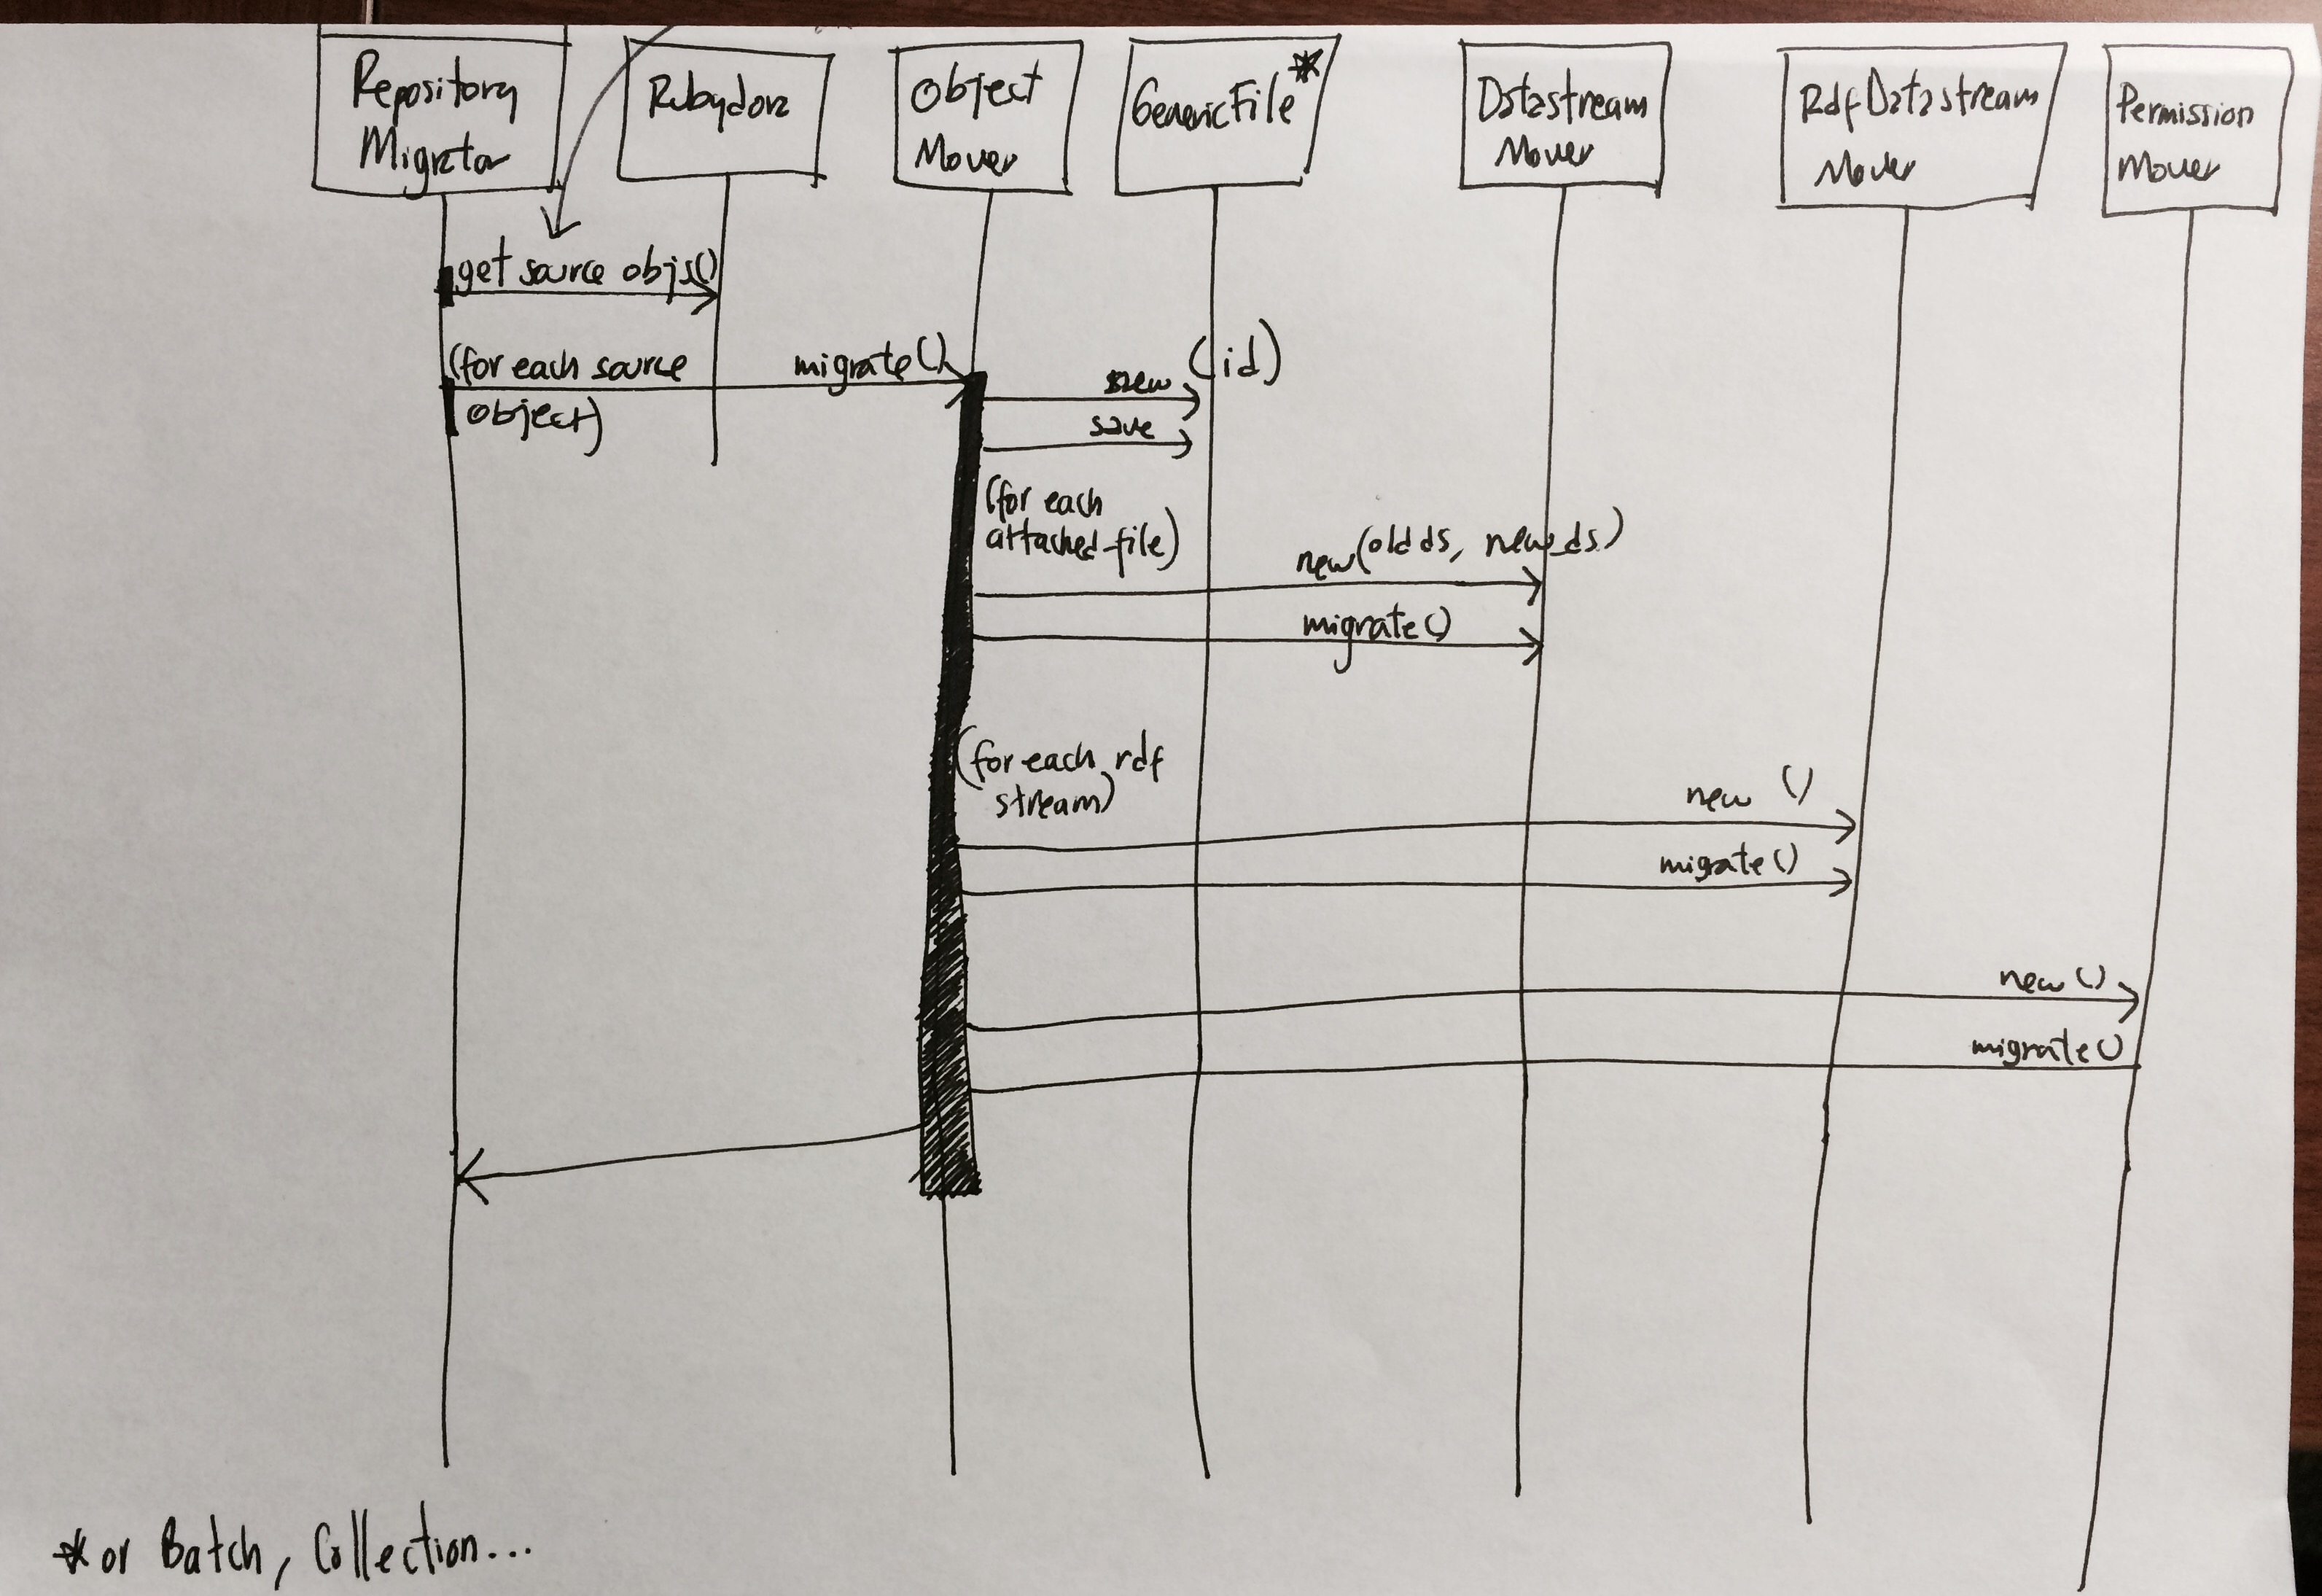 Repository
Migrator
Rubydora
Object
Mover
GenericFile*
Datastream
Mover
RdfDatastream
Mover
Permission
Mover
get source objs()
(for each source
object)
migrate()
new
(id)
save
(for each
attached_file)
new(old ds, new_ds)
migrate()
(for each rdf
stream)
new ()
migrate()
new ()
migrate()
*or Batch, Collection...